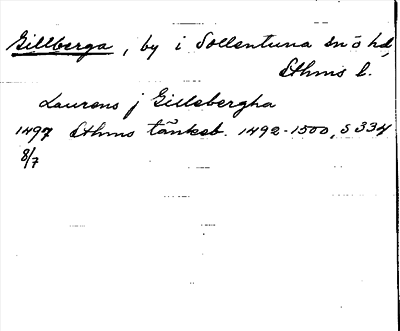 Gillberga, by i Sollentuna sn o hd,
Sthms l.
Laurens j Gillebergha
1497 Sthms tänkeb. 1492-1500, s 334
8/7